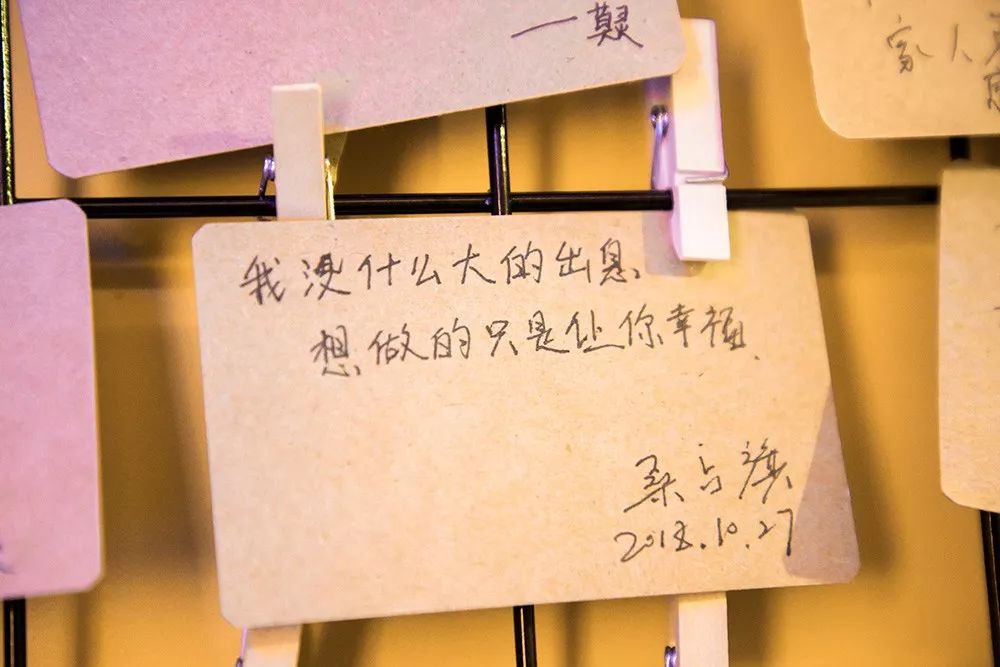 我没什么大的出息、
想做的只是让你幸福.
2018.10.27
家人